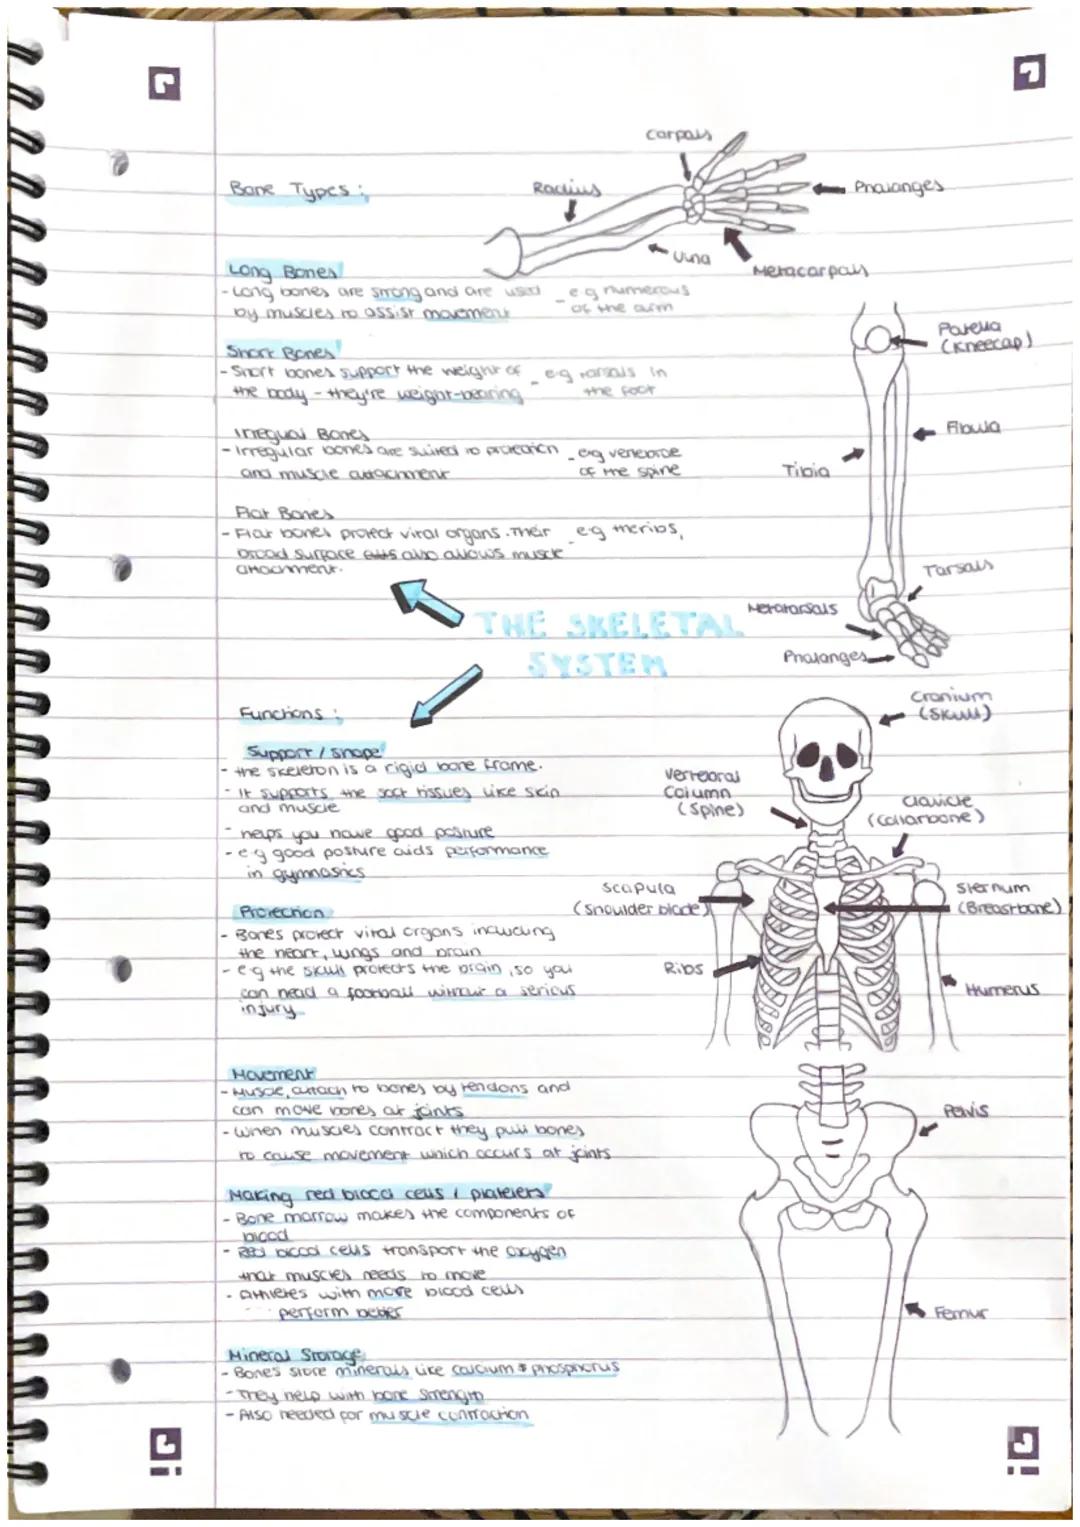 Carpals
Radius
Phalanges
Ulna
Metacarpals
Bone Types :
Long Bones
- Long bones are strong and are used
by muscles to assist movement
- e.g numerous
of the arm
Short Bones
- Short bones support the weight of
the body - they're weight-bearing
- e.g tarsals in
the foot
Irregual Bones
- Irregular bones are suited to protection
and muscle attachment
- e.g vertebrae
of the spine
Flat Bones
- Flat bones protect vital organs. Their
broad surface also allows muscle
attachment.
- e.g the ribs,
Patella
(Kneecap)
Fibula
Tibia
Tarsals
Metatarsals
Phalanges
THE SKELETAL
SYSTEM
Functions :
Support / shape
- the skeleton is a rigid bone frame.
- It supports the soft tissues like skin
and muscle
- helps you have good posture
- e.g good posture aids performance
in gymnastics
Protection
- Bones protect vital organs including
the heart, lungs and brain
- e.g the skull protects the brain, so you
can head a football without a serious
injury
Movement
- Muscle, attach to bones by tendons and
can move bones at joints
- When muscles contract they pull bones
to cause movement which occurs at joints
Making red blood cells & platelets
- Bone marrow makes the components of
blood
- Red blood cells transport the oxygen
that muscles needs to move
- Athletes with more blood cells
perform better
Mineral Storage
- Bones store minerals like calcium & phosphorus
- They help with bone strength
- Also needed for muscle contraction
Cranium
(Skull)
Vertebral
Column
(Spine)
Clavicle
(Collarbone)
Scapula
(Shoulder blade)
Sternum
(Breastbone)
Ribs
Humerus
Pelvis
Femur